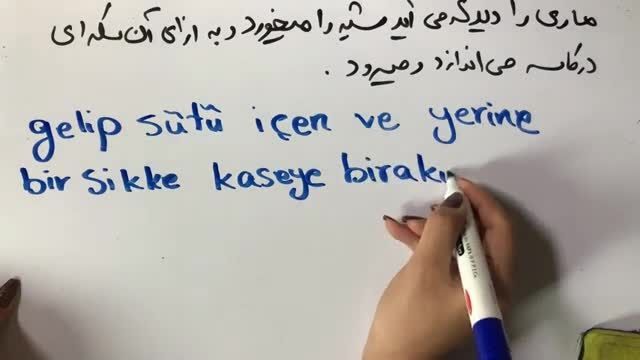 ماری را دید که می آید شیر را میخورد و به ازای آن سکه ای
در کاسه می اندازد و میرود .
gelip sütü içen ve yerine
bir sikke kaseye birakı